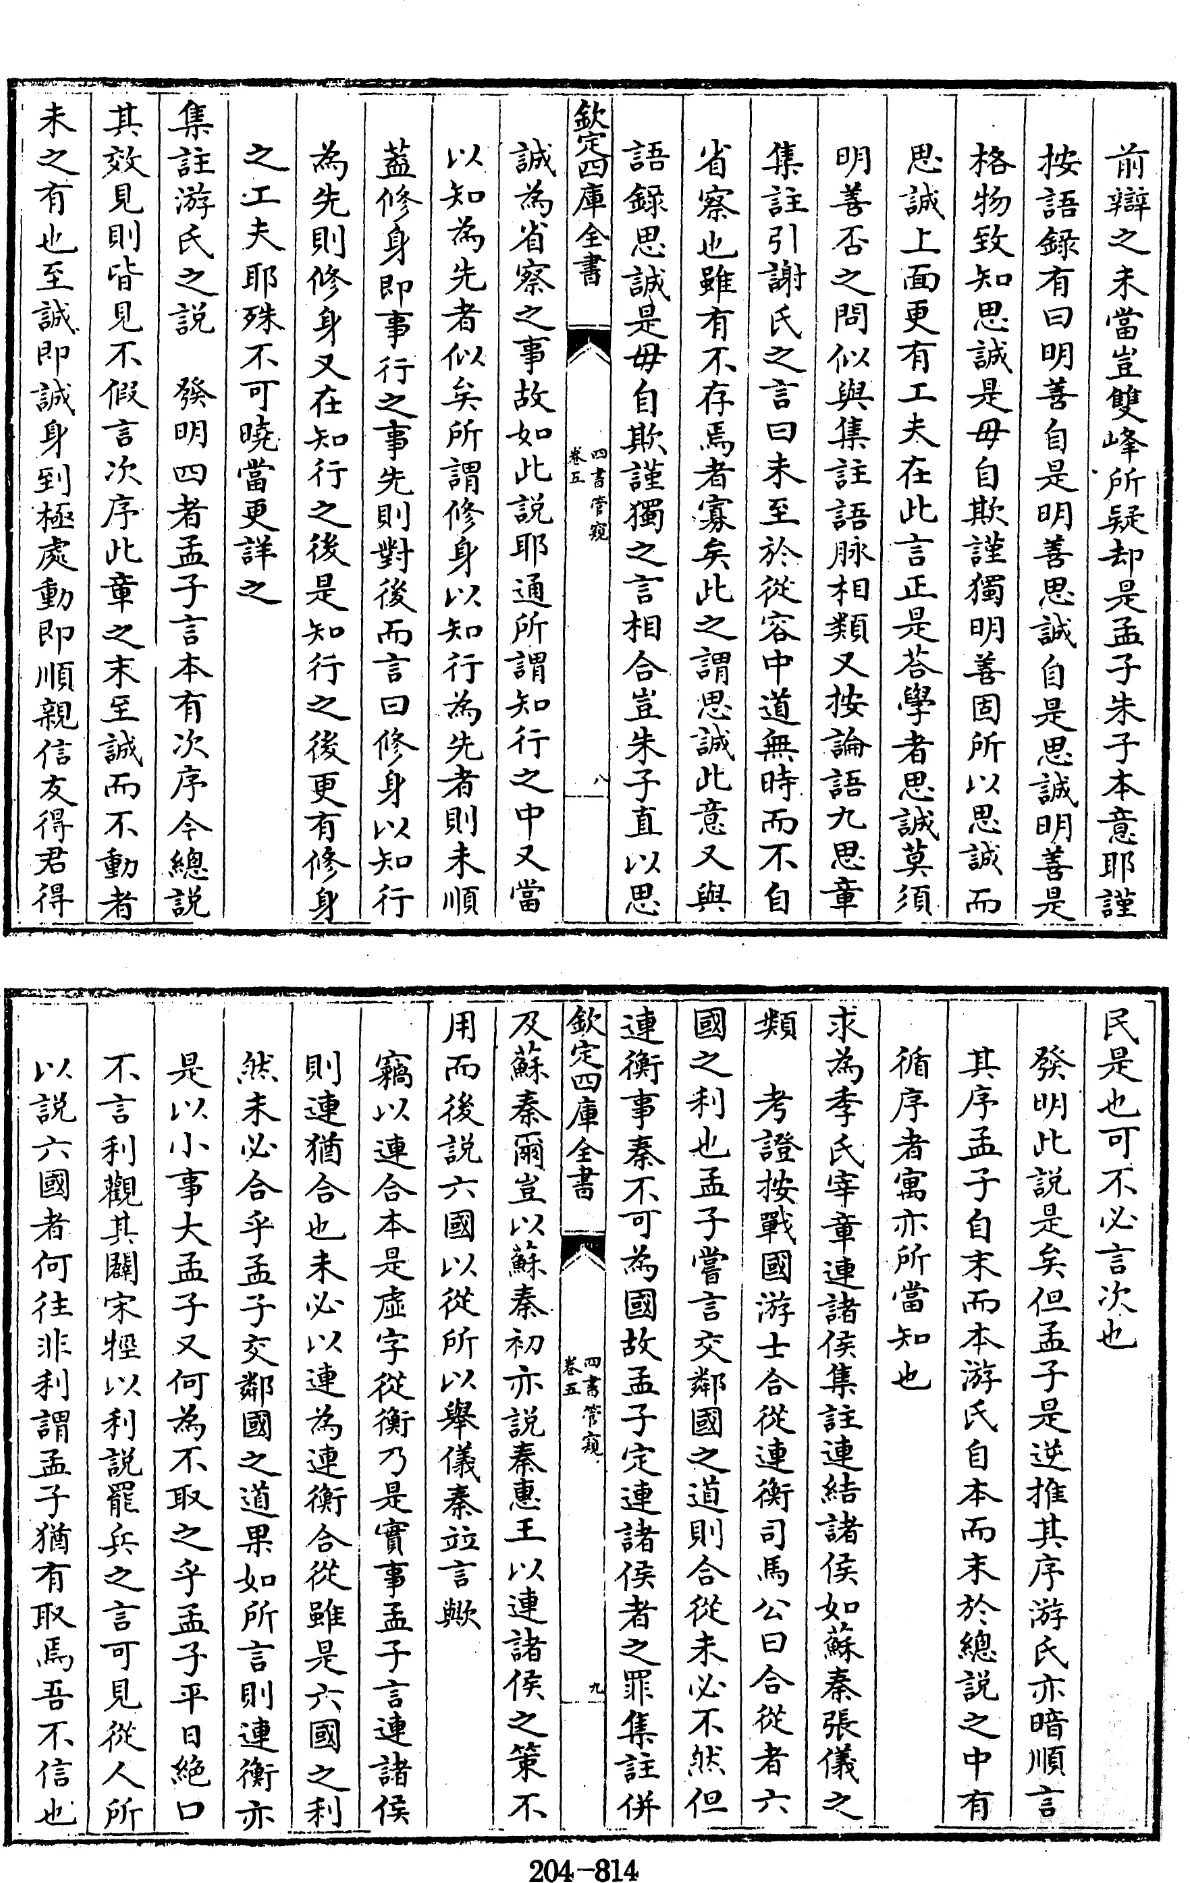 前辯之未當豈雙峰所疑却是孟子朱子本意耶謹
按語錄有曰明善自是明善思誠自是思誠明善是
格物致知思誠是毋自欺謹獨明善固所以思誠而
思誠上面更有工夫在此言正是荅學者思誠莫須
明善否之問似與集註語脉相類又按論語九思章
集註引謝氏之言曰未至於從容中道無時而不自
省察也雖有不存焉者寡矣此之謂思誠此意又與
語錄思誠是毋自欺謹獨之言相合豈朱子直以思
欽定四庫全書
四書管窺
卷五
八
誠為省察之事故如此說耶通所謂知行之中又當
以知為先者似矣所謂修身以知行為先者則未順
蓋修身即事行之事先則對後而言曰修身以知行
為先則修身又在知行之後是知行之後更有修身
之工夫耶殊不可曉當更詳之
集註游氏之說　發明四者孟子言本有次序今總說
其效見則皆見不假言次序此章之末至誠而不動者
未之有也至誠即誠身到極處動即順親信友得君得
民是也可不必言次也
發明此說是矣但孟子是逆推其序游氏亦暗順言
其序孟子自末而本游氏自本而末於總說之中有
循序者寓亦所當知也
求為季氏宰章連諸侯集註連結諸侯如蘇秦張儀之
類　考證按戰國游士合從連衡司馬公曰合從者六
國之利也孟子嘗言交鄰國之道則合從未必不然但
連衡事秦不可為國故孟子定連諸侯者之罪集註併
欽定四庫全書
四書管窺
卷五
九
及蘇秦爾豈以蘇秦初亦說秦惠王以連諸侯之策不
用而後說六國以從所以舉儀秦竝言歟
竊以連合本是虛字從衡乃是實事孟子言連諸侯
則連猶合也未必以連為連衡合從雖是六國之利
然未必合乎孟子交鄰國之道果如所言則連衡亦
是以小事大孟子又何為不取之乎孟子平日絕口
不言利觀其闢宋牼以利說罷兵之言可見從人所
以說六國者何往非利謂孟子猶有取焉吾不信也
204-814